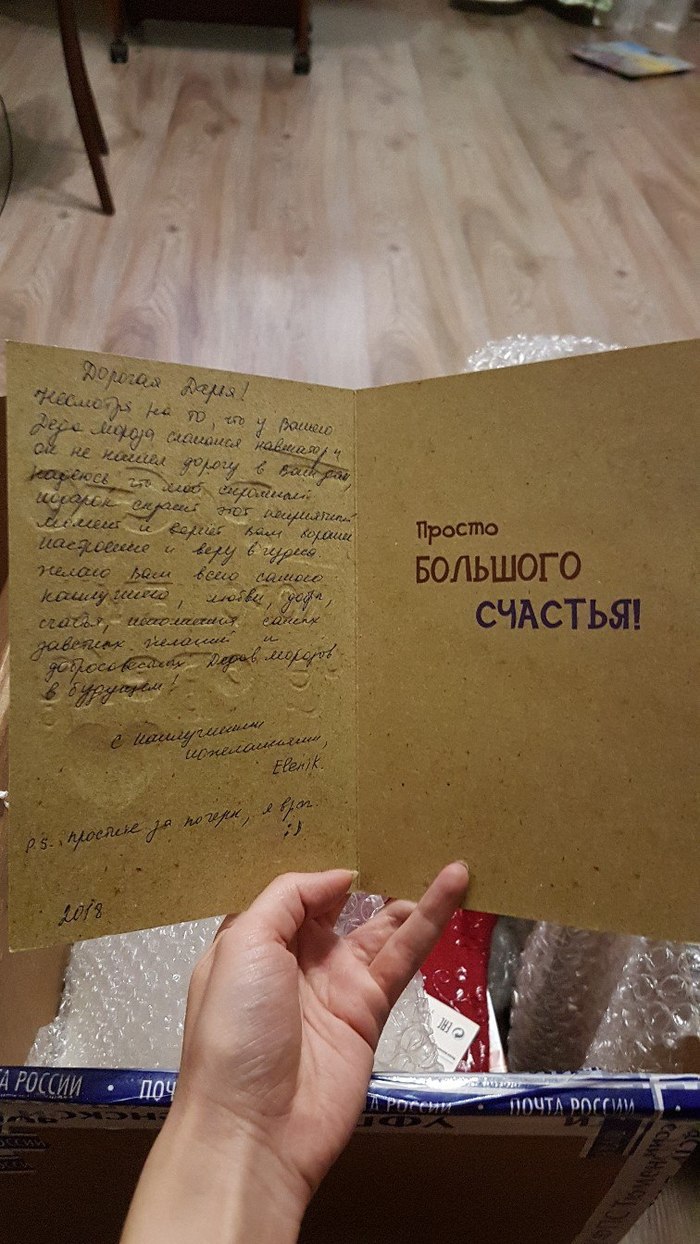 Дорогая Дарья!
Несмотря на то, что у Вашего
Деда Мороза сломался навигатор и
он не нашел дорогу в Ваш дом,
надеюсь что мой скромный
подарок скрасит этот неприятный
момент и вернет Вам хорошее
настроение и веру в чудеса.
Желаю Вам всего самого
наилучшего, любви, добра,
счастья, исполнения самых
заветных желаний и
добросовестных Дедов Морозов
в будущем!
С наилучшими
пожеланиями,
EleniK.
P.S. простите за почерк, я врач.
;)
2018
Просто
БОЛЬШОГО
СЧАСТЬЯ!
EAC
ТА РОССИИ • ПОЧ
ТА РОССИИ • ПОЧТА РОССИИ